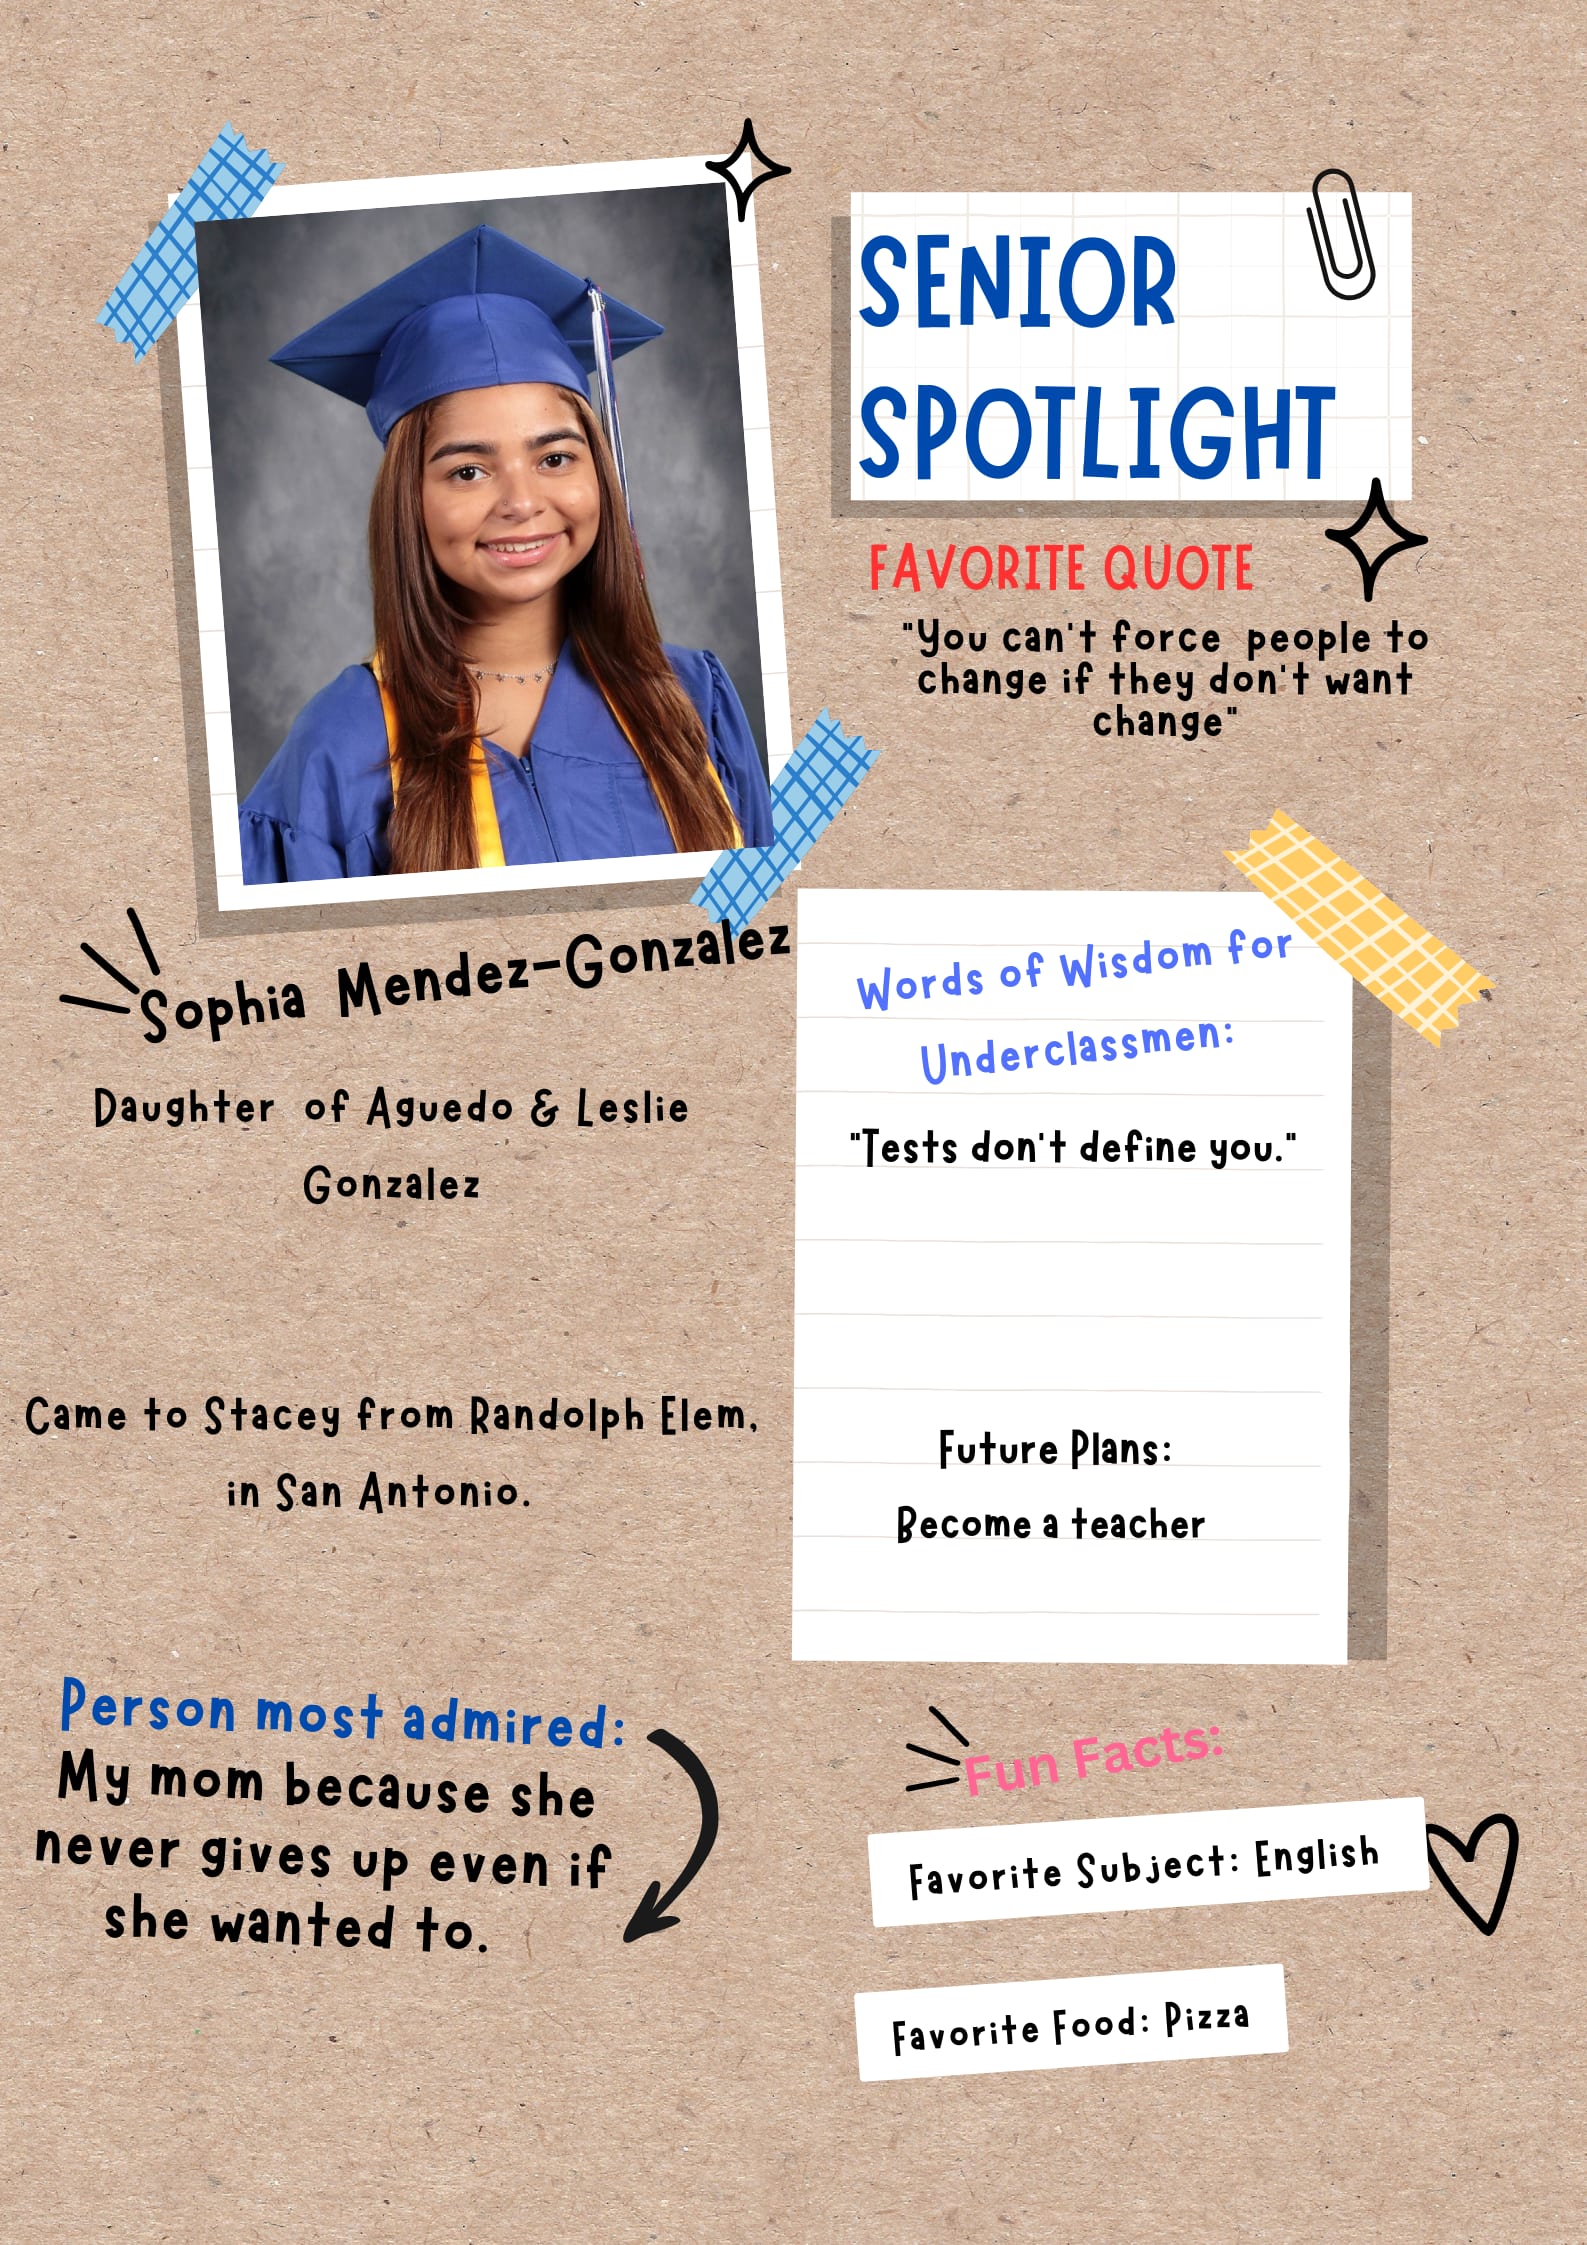 SENIOR
SPOTLIGHT
FAVORITE QUOTE
"You can't force people to
change if they don't want
change"
Sophia Mendez-Gonzalez
Daughter of Aguedo & Leslie
Gonzalez
Came to Stacey from Randolph Elem,
in San Antonio.
Words of Wisdom for
Underclassmen:
"Tests don't define you."
Future Plans:
Become a teacher
Person most admired:
My mom because she
never gives up even if
she wanted to.
Fun Facts:
Favorite Subject: English
Favorite Food: Pizza